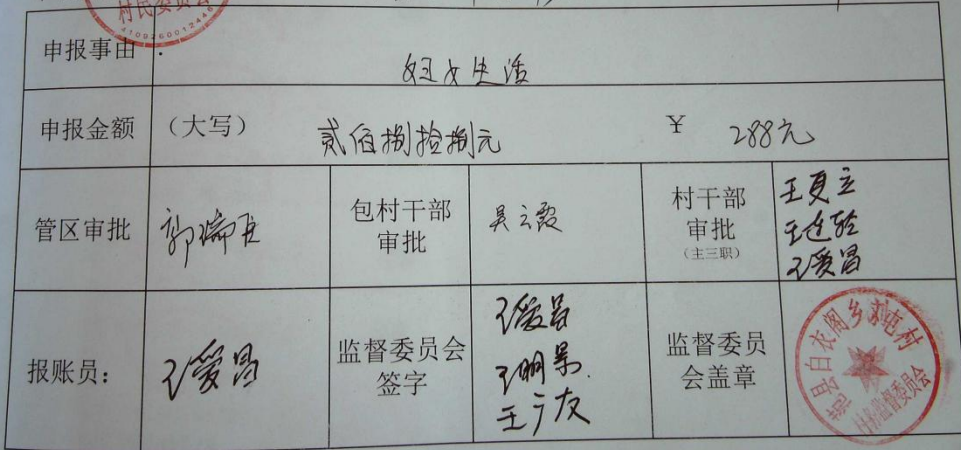 村民委员会
3109260012446
申报事由
妇女生活
申报金额 （大写） 贰佰捌拾捌元 ¥ 288元
管区审批
包村干部
审批
吴云霞
村干部
审批
（主三职）
王夏立
王爱昌
报账员：
王爱昌
监督委员会
签字
王爱昌
王明景
王广友
监督委员
会盖章
县白衣阁乡 屯村
村务监督委员会